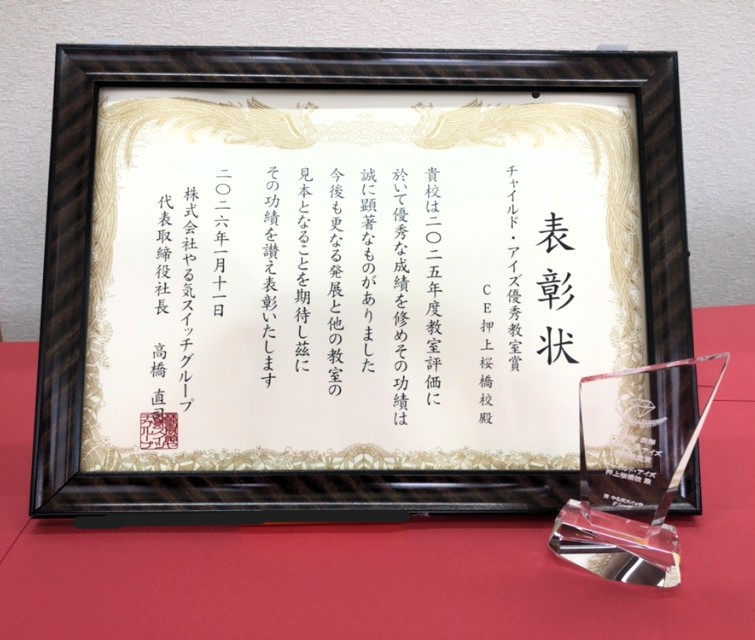 表彰状
チャイルド・アイズ優秀教室賞
CE押上桜橋校殿
貴校は二〇二五年度教室評価に
於いて優秀な成績を修めその功績は
誠に顕著なものがありました
今後も更なる発展と他の教室の
見本となることを期待し茲に
その功績を讃え表彰いたします
二〇二六年一月十一日
株式会社やる気スイッチグループ
代表取締役社長 高橋 直司
押上桜橋校 殿